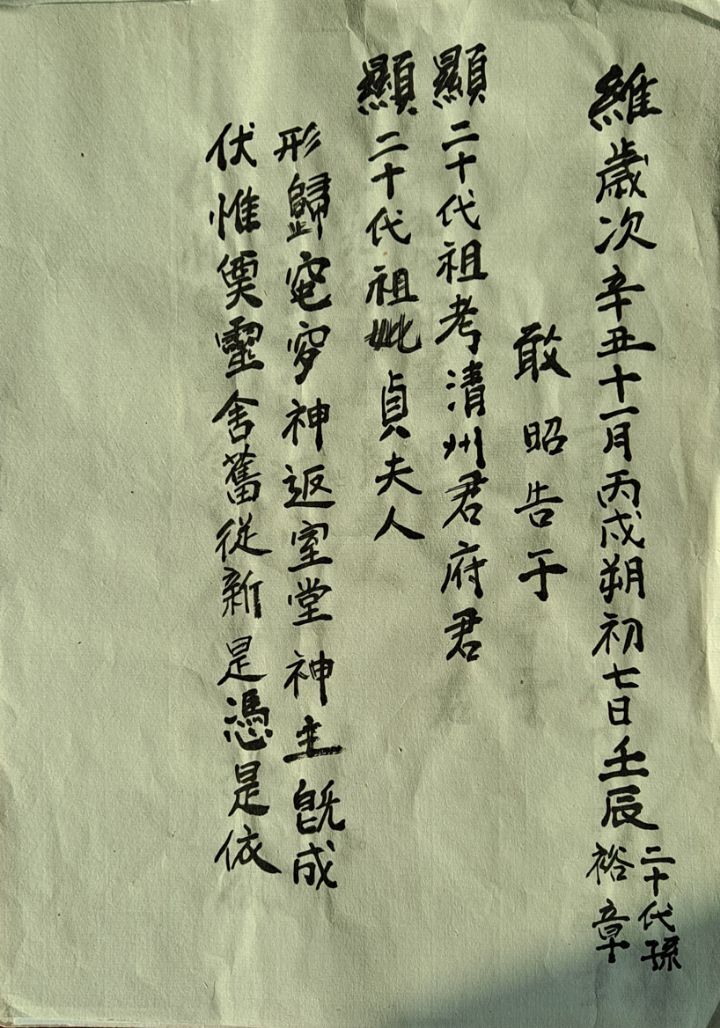 維歲次辛丑十一月丙戌朔初七日壬辰
二十代孫
裕章
敢昭告于
顯二十代祖考淸州君府君
顯二十代祖妣貞夫人
形歸窀穸神返室堂神主旣成
伏惟靈舍舊從新是憑是依